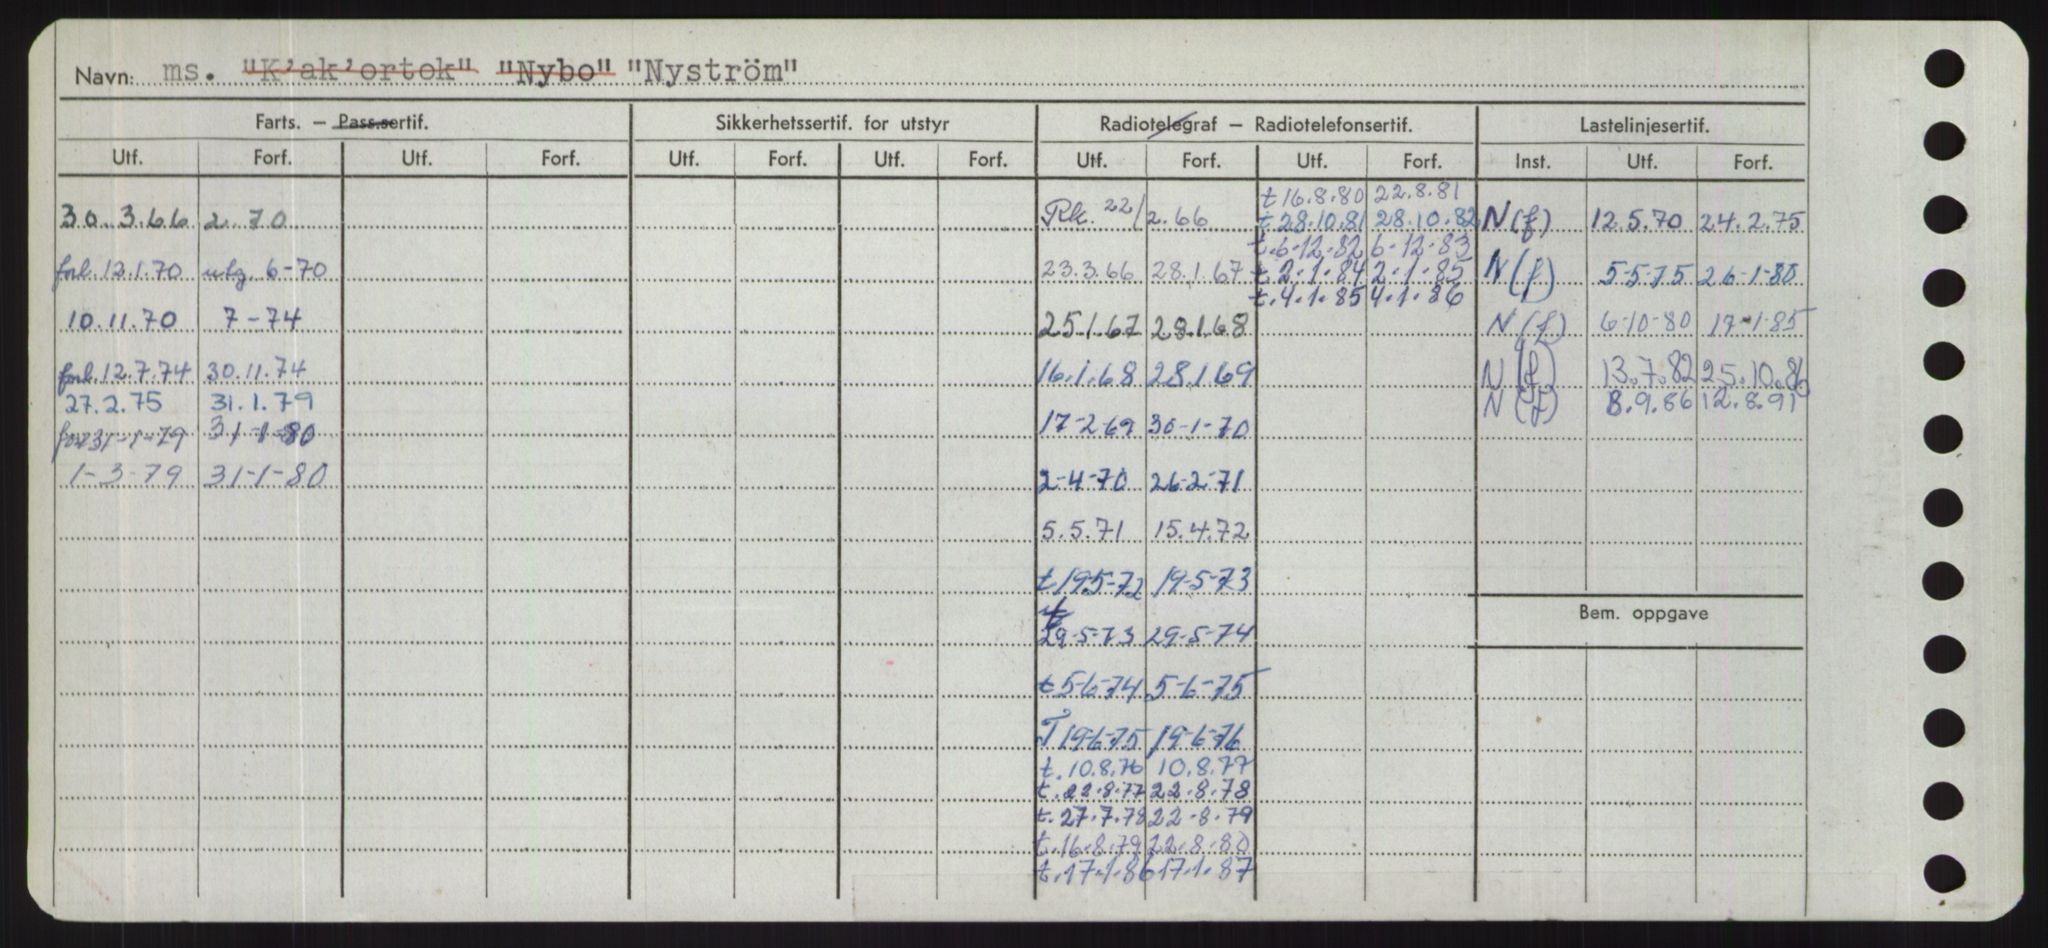 Navn: ms. "K'ak'ortok" "Nybo" "Nyström"
Farts. — Pass.sertif. Sikkerhetssertif. for utstyr Radiotelegraf — Radiotelefonsertif. Lastelinjesertif.
Utf. Forf. Utf. Forf. Utf. Forf. Utf. Forf. Utf. Forf. Utf. Forf. Inst. Utf. Forf.
t 16.8.80 22.8.81
30.3.66 2.70 Rk. 22/2.66 t 28.10.81 28.10.82 N(f) 12.5.70 24.2.75
t.6-12.82 6-12-83
forl. 12.1.70 utg. 6-70 23.3.66 28.1.67 t 2.1.84 2.1.85 N(f) 5-5-75 26-1-80
t.4.1.85 4.1.86
10.11.70 7-74 25.1.67 28.1.68 N(f) 6-10-80 17-1-85
forl. 12.7.74 30.11.74 16.1.68 28.1.69 N(f) 13.7.82 25.10.86
27.2.75 31.1.79 N(f) 8.9.86 12.8.91
31-1-79 31-1-80 17-2-69 30-1-70
1-3-79 31-1-80 2-4-70 26-2-71
5.5.71 15.4.72
t 19-5-72 19-5-73
29-5-73 29-5-74
t 5-6-74 5-6-75
T 19-6-75 19-6-76
t. 10.8.76 10.8.77
t. 22.8.77 22.8.78
t. 27.7.78 22.8.79
t. 16.8.79 22.8.80
t. 17.1.86 17.1.87
Bem. oppgave